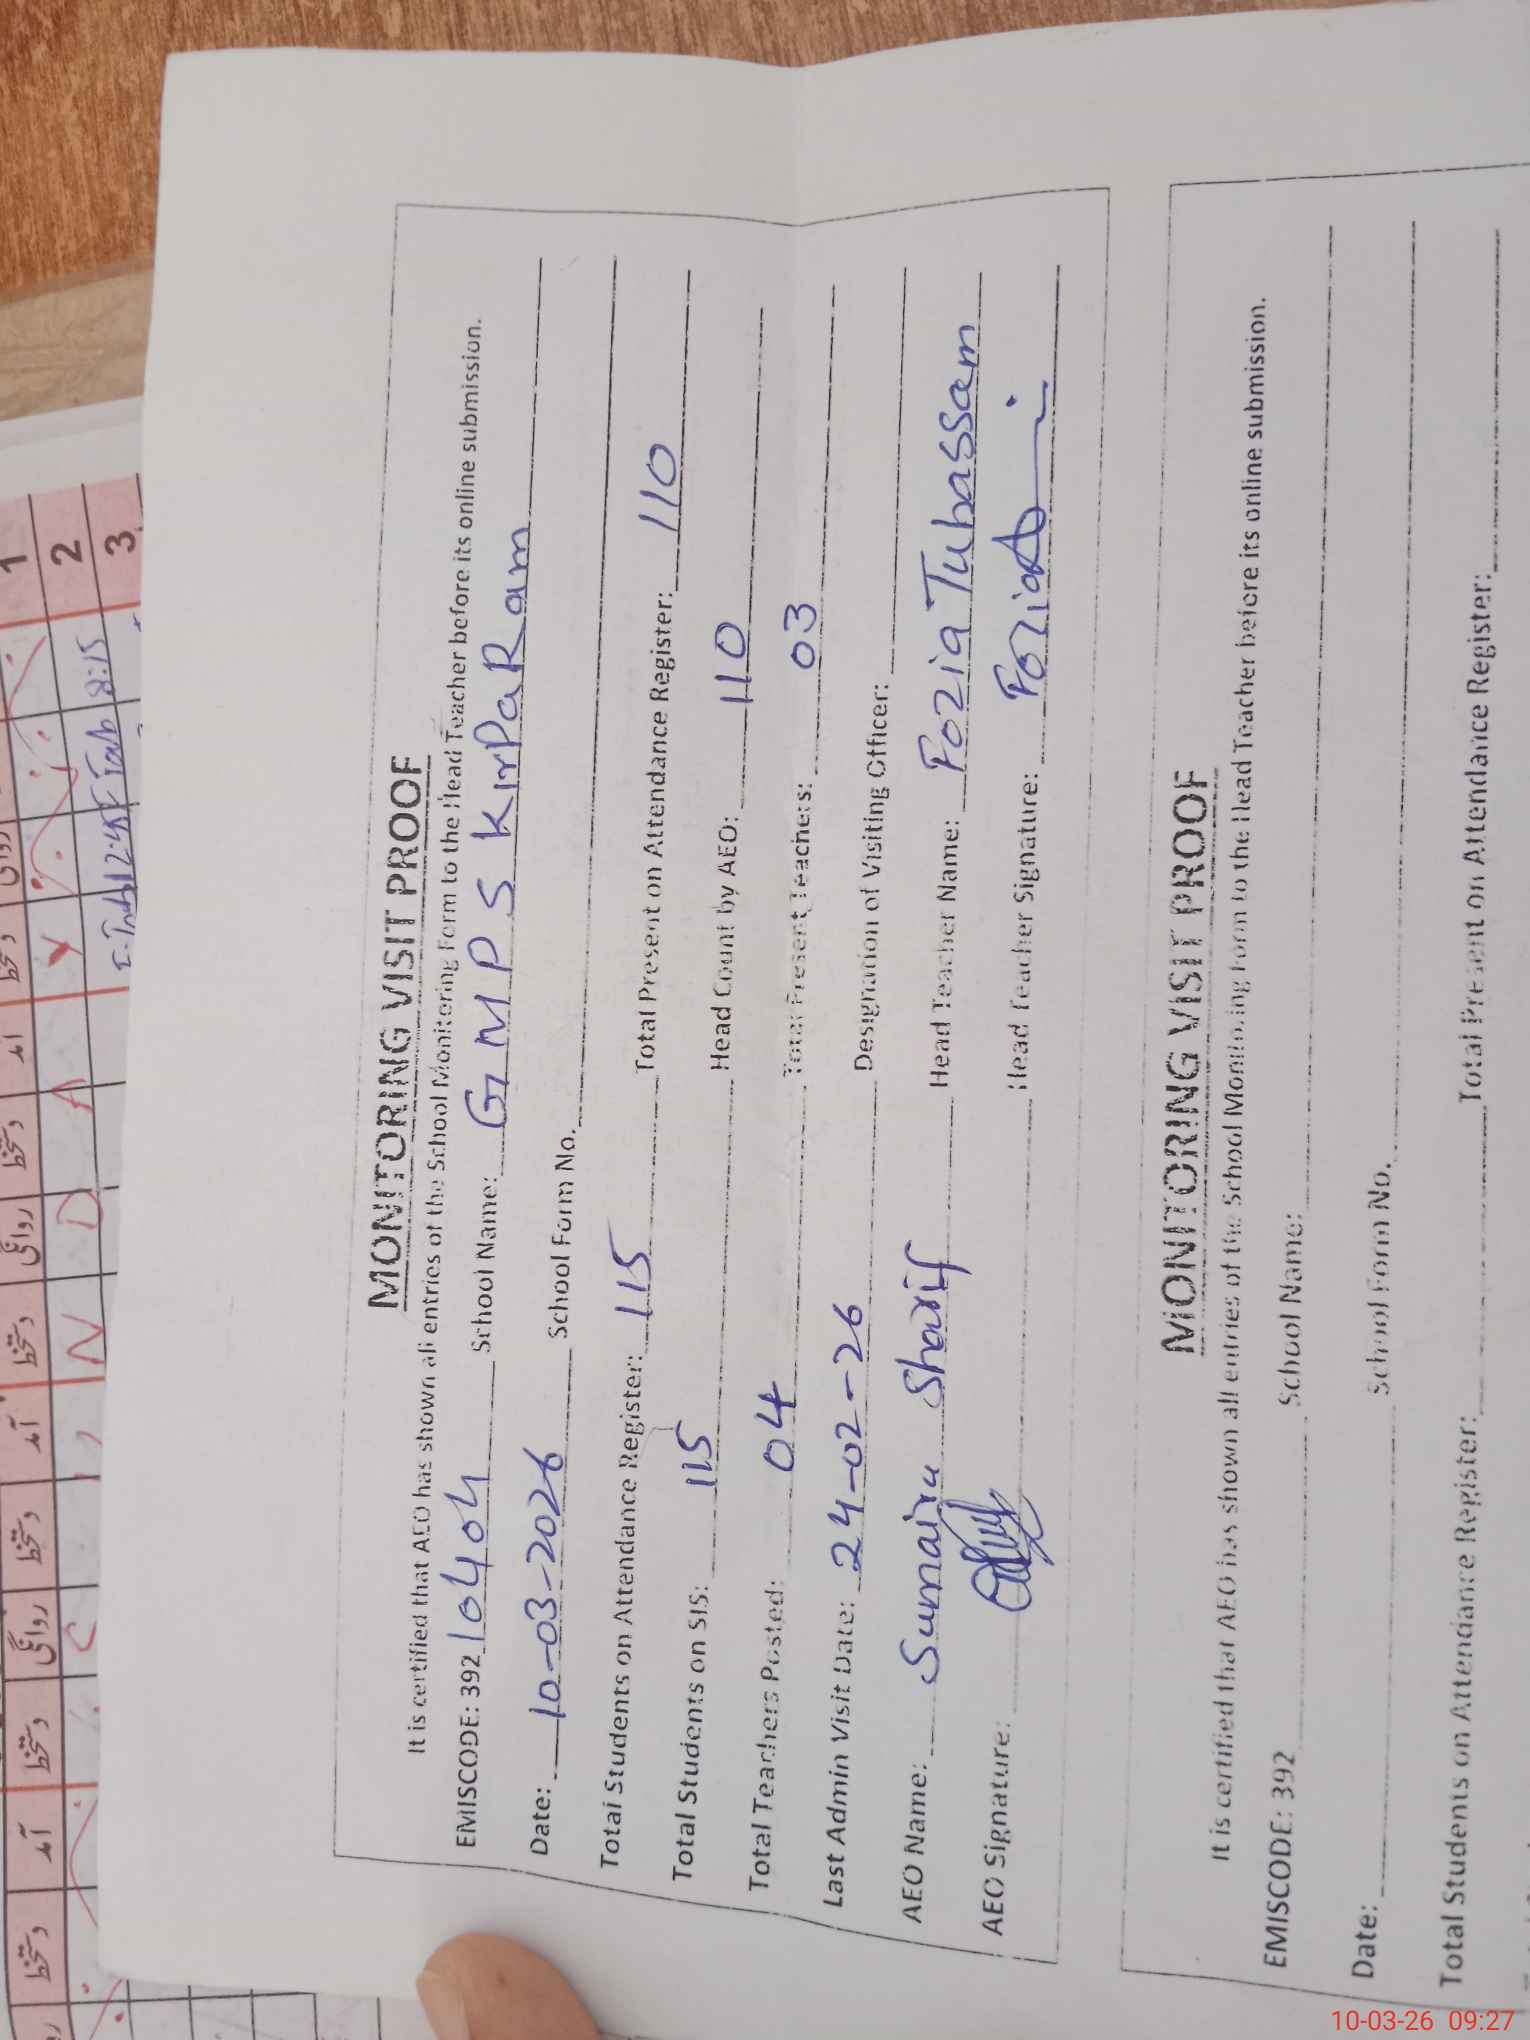 MONITORING VISIT PROOF
It is certified that AEO has shown all entries of the School Monitoring Form to the Head Teacher before its online submission.
EMISCODE: 392 10404 School Name: GMPS KirPaRam
Date: 10-03-2026 School Form No.
Total Students on Attendance Register: 115 Total Present on Attendance Register: 110
Total Students on SIS: 115 Head Count by AEO: 110
Total Teachers Posted: 04 Total Present Teachers: 03
Last Admin Visit Date: 24-02-26 Designation of Visiting Officer:
AEO Name: Sumaira Sharif Head Teacher Name: Fozia Tubassam
AEO Signature: Head Teacher Signature: Fozia
MONITORING VISIT PROOF
It is certified that AEO has shown all entries of the School Monitoring Form to the Head Teacher before its online submission.
EMISCODE: 392 School Name:
Date: School Form No.
Total Students on Attendance Register: Total Present on Attendance Register:
دستخط آمد دستخط روانگی دستخط آمد دستخط روانگی دستخط آمد دستخط روانگی
1
2
3
S U N D A Y
8:15
10-03-26 09:27